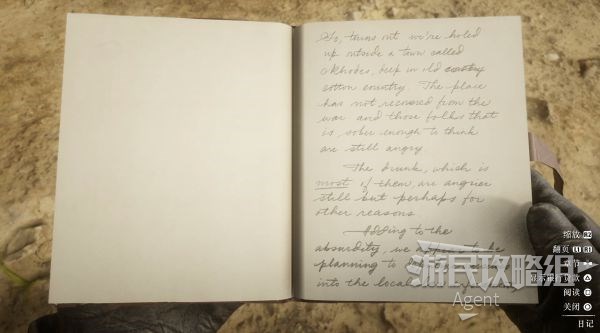 So, turns out we're holed
up outside a town called
Rhodes, deep in old country
cotton country. The place
has not recovered from the
war and those folks that
is sober enough to think
are still angry.
The drunk, which is
most of them, are angrier
still but perhaps for
other reasons.
Adding to the
absurdity, we
planning to
into the local
游民攻略组
Agent
缩放 R2
翻页 L1 R1
章节
阅读
关闭
日记